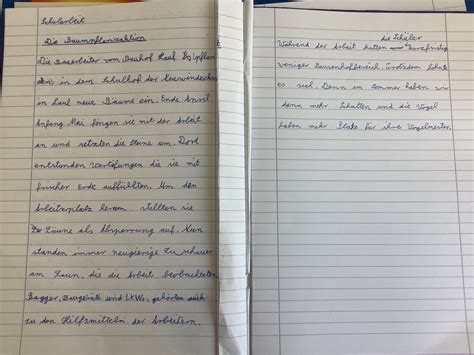 Schularbeit
Die Baumpflanzaktion
Die Bauarbeiter vom Bauhof
in dem Schulhof der
in Lauf neue Bäume ein. Ende April
Anfang Mai fingen sie mit der Arbeit
an und setzten die Steine um. Dort
entstanden Vertiefungen die sie mit
frischer Erde auffüllten. Um den
Arbeitsplatz herum stellten sie
Zäune als Absperrung auf. Nun
standen immer neugierige Zuschauer
am Zaun, die die Arbeit beobachteten
Bagger, und LKWs, gehörten
zu den Hilfsmitteln der Arbeitern.
die Schüler
Während der Arbeit hatten kurzfristig
weniger Pausenhofbereich. Trotzdem lohnte
es sich. Denn im Sommer haben wir
dann mehr Schatten und die Vögel
haben mehr Platz für ihre Vogelnester.